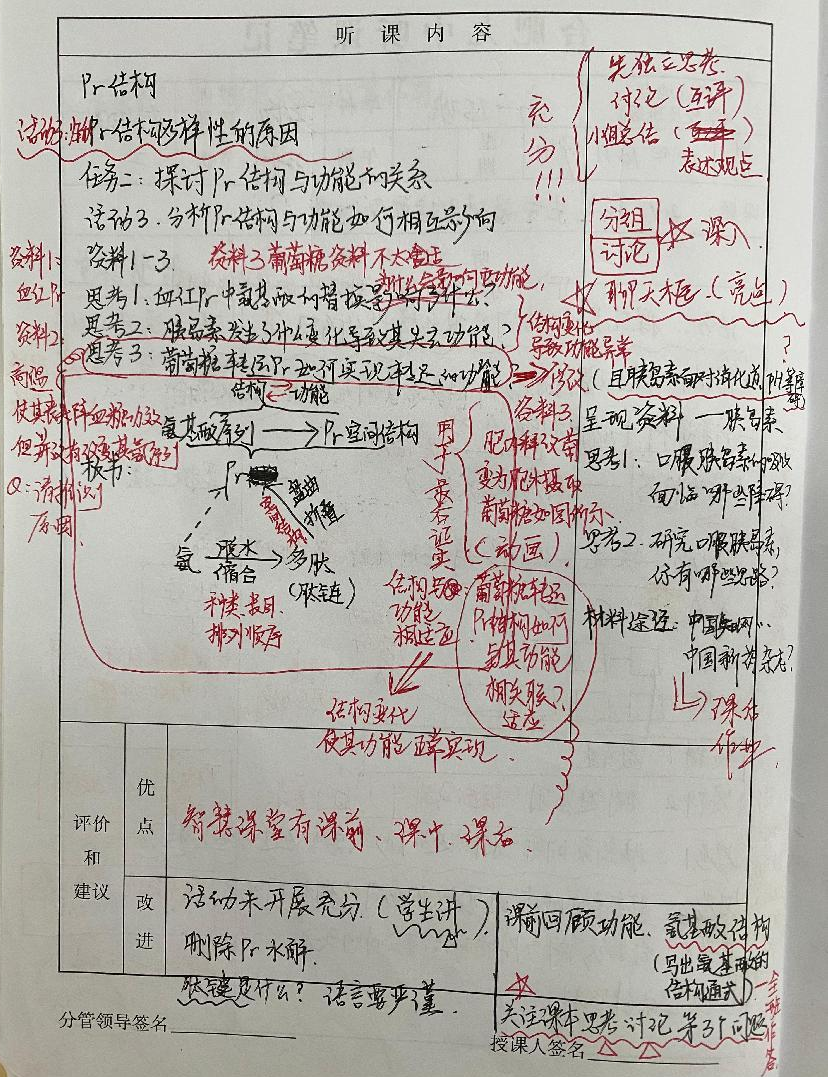 听课内容
Pr结构
活动3:
Pr结构多样性的原因
任务二:探讨Pr结构与功能的关系
活动3.分析Pr结构与功能如何相互影响
资料1-3. 资料3葡萄糖资料不太合适
思考1:血红Pr中氨基酸的替换影响了什么?
思考2:胰岛素发生了什么变化导致其失去功能?
思考3:葡萄糖转运Pr如何实现转运的功能?
修改
结构变化
导致功能异常
结构 功能
氨基酸序列 Pr空间结构
板书:
Pr
盘曲
折叠
空间结构
氨 脱水
缩合 多肽
(肽链)
种类.数目.
排列顺序
资料1:
血红Pr
资料2:
高温
使其丧失降血糖功效
但并没有改变其氨序列
原因.
用于最后证实
结构与
功能
相适应
资料3
变为胞外摄取
葡萄糖如图所示
(动画)
葡萄糖转运
Pr结构如何
与其功能
相关联?
适应
结构变化
使其功能正常实现.
充分!!!
先独立思考.
讨论(互评)
小组总结(
表达观点
分组
讨论
深入
聊天框.(亮点)
?
(且胰岛素面对消化道PH等
呈现资料——胰岛素
思考1:口服胰岛素的吸收
面临哪些障碍?
思考2.研究口服胰岛素,
你有哪些思路?
材料途径:中国知网..
中国新药杂志?
课后
作业.
评价
和
建议
优
点
智慧课堂有课前、课中、课后.
改
进
活动未开展充分.(学生讲).
删除Pr水解.
肽键是什么?语言要严谨.
课前回顾功能、氨基酸结构
(写出氨基酸的
结构通式)
全班作答
关注课本思考讨论第3个问题
分管领导签名
授课人签名